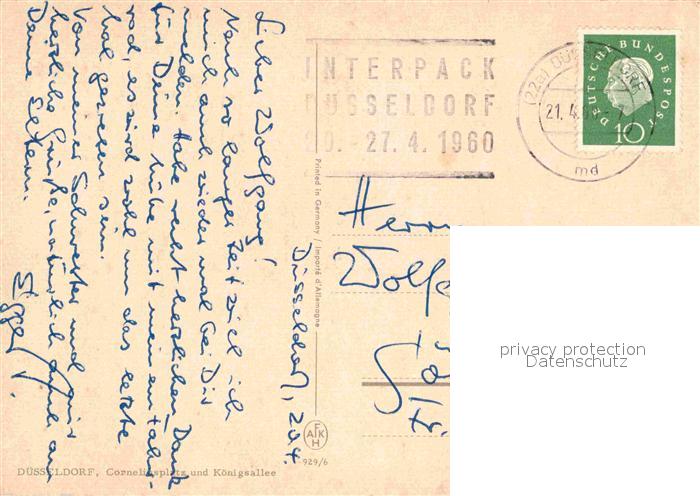 Düsseldorf, 20.4.
Lieber Wolfgang!
Nach so langer Zeit will ich
mich auch wieder mal bei Dir
melden. Habe recht herzlichen Dank
für Deine Mühe mit meinem Fahr-
rad, es wird wohl um das letzte
mal gewesen sein.
Von meiner Schwester und mir
herzliche Grüße, natürlich auch an
Deine Eltern.
INTERPACK
DÜSSELDORF
20. - 27. 4. 1960
(22a) DÜS
21. 4.
md
DEUTSCHE BUNDESPOST
10
Printed in Germany / Importé d'Allemagne
Herrn
Wolfg
Fr.
privacy protection
Datenschutz
AFKH
929/6
DÜSSELDORF, Corneliusplatz und Königsallee